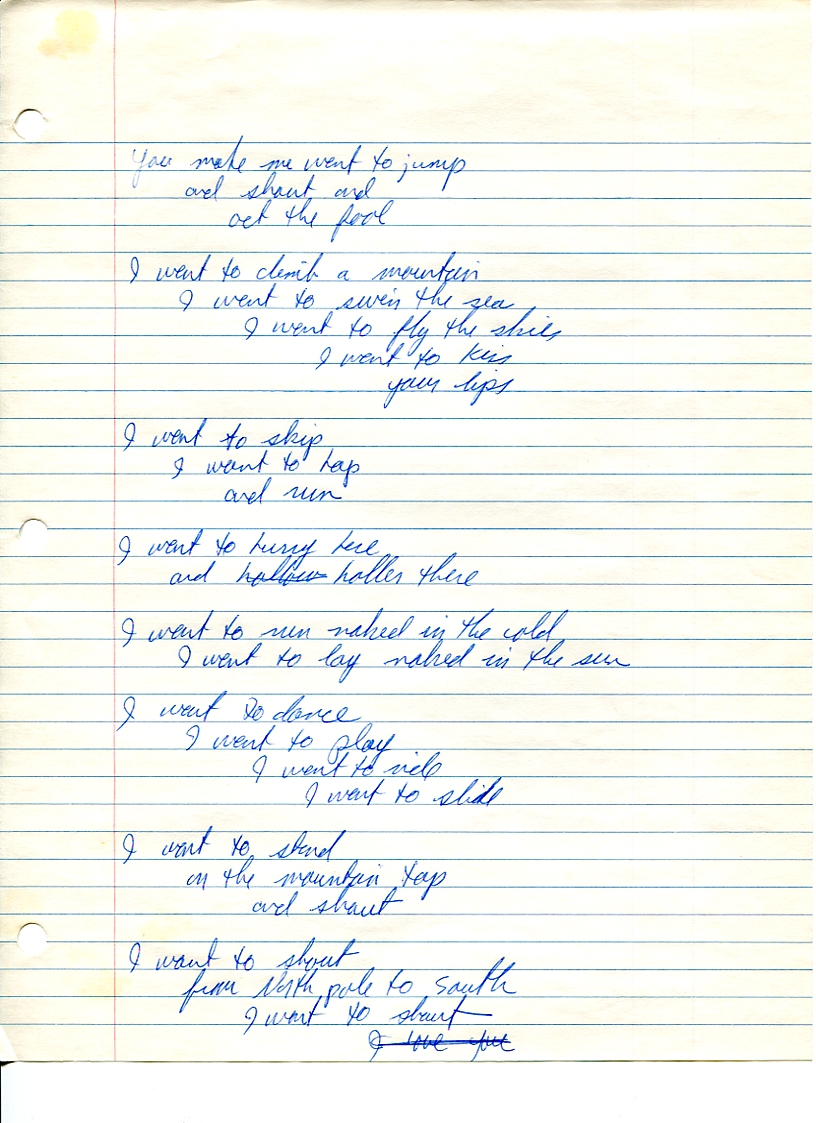 You make me want to jump
and shout and
act the fool
I want to climb a mountain
I want to swim the sea
I want to fly the skies
I want to kiss
your lips
I want to skip
I want to hop
and run
I want to hurry here
and hollow holler there
I want to run naked in the cold
I want to lay naked in the sun
I want to dance
I want to play
I want to ride
I want to slide
I want to stand
on the mountain top
and shout
I want to shout
from North pole to South
I want to shout
I love you